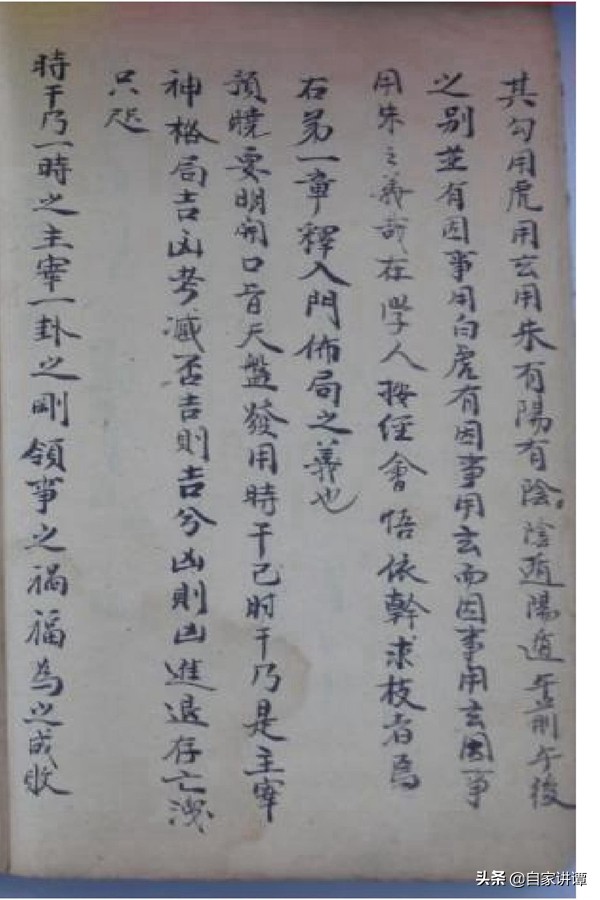 其勾用虎用玄用朱有陽有陰陰遁陽遁午前午後
之别並有因事用白虎有因事用玄而因事用玄因事
用朱之義哉在學人按經會悟依幹求枝者爲
右第一章釋入門佈局之義也
預曉要明開口旨天盤發用時干已時干乃是主宰
神格局吉凶考臧否吉則吉兮凶則凶進退存亡淺
只咫
時干乃一時之主宰一卦之剛領事之禍福為之成敗
头条 @自家讲谭